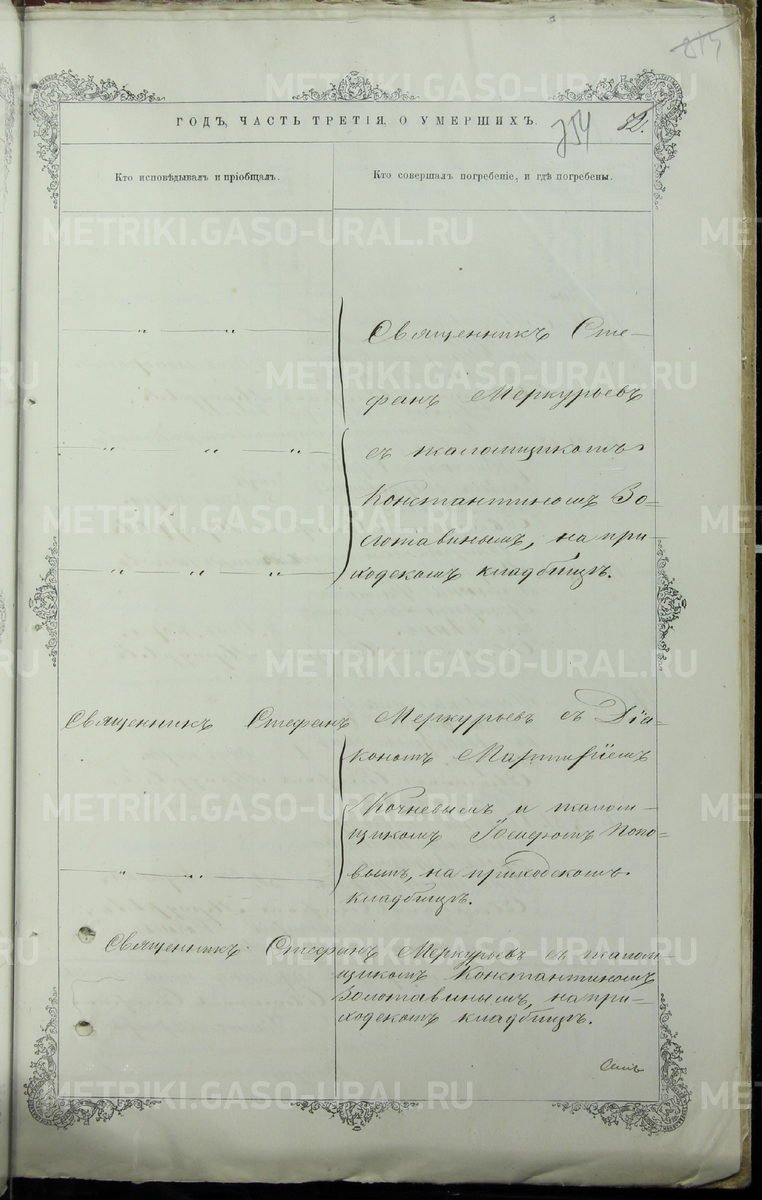 815
ГОДЪ, ЧАСТЬ ТРЕТІЯ, О УМЕРШИХЪ.
254
52.
Кто исповѣдывалъ и пріобщалъ.
Кто совершалъ погребеніе, и гдѣ погребены.
— „ — „ —
Священникъ Сте-
фанъ Меркурьевъ
— „ — „ — „ —
съ псаломщикомъ
Константиномъ Зо-
лотавинымъ, на при
— „ — „ — „ —
ходскомъ кладбищѣ.
Священникъ Стефанъ Меркурьевъ съ Діа-
кономъ
Кочневымъ и псалом-
щикомъ Іосифомъ Попо-
— „ — „ —
вымъ, на приходскомъ
кладбищѣ.
Священникъ Стефанъ Меркурьевъ съ псалом-
щикомъ Константиномъ
Золотавинымъ, на при-
ходскомъ кладбищѣ.
METRIKI.GASO-URAL.RU